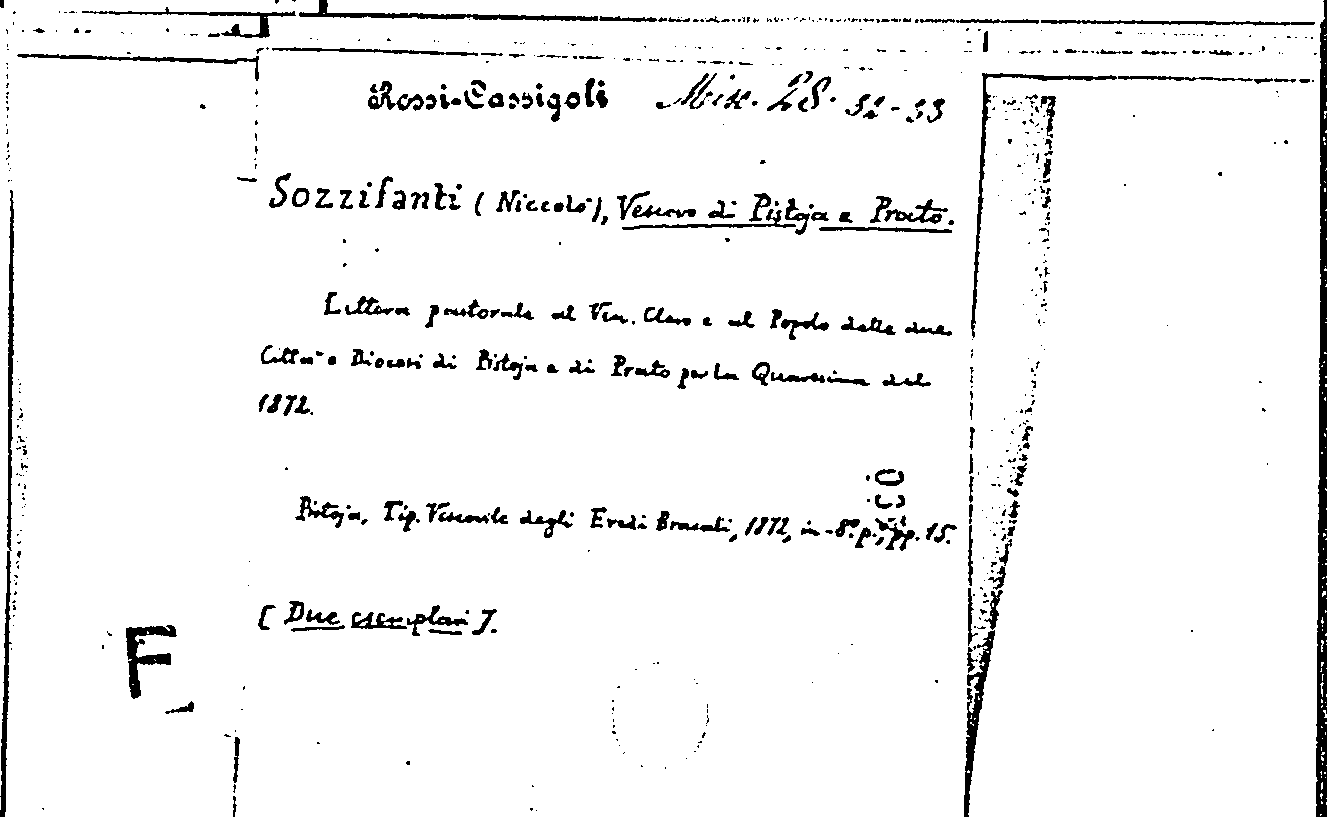 Rossi-Cassigoli Misc. 28. 32-33
Sozzifanti (Niccolò), Vescovo di Pistoja e Prato.
Lettera pastorale al Ven. Clero e al Popolo delle due
Città e Diocesi di Pistoja e di Prato per la Quaresima del
1872.
Pistoja, Tip. Vescovile degli Eredi Bracali, 1872, in-8.° p., pp. 15.
[Due esemplari].
F